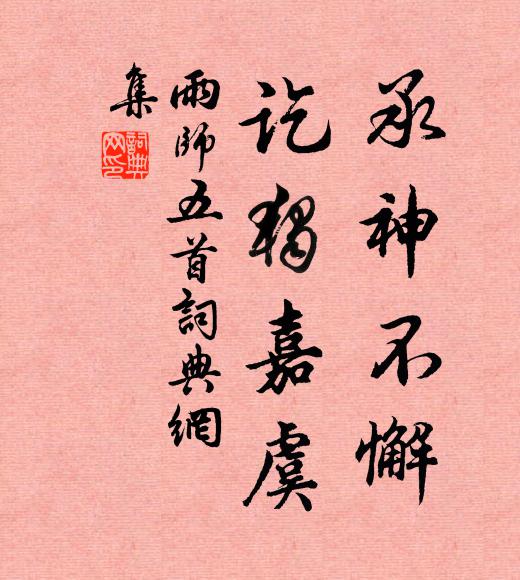 承神不懈
訖獨嘉虞
雨師五首詞典網
集
詞典网印